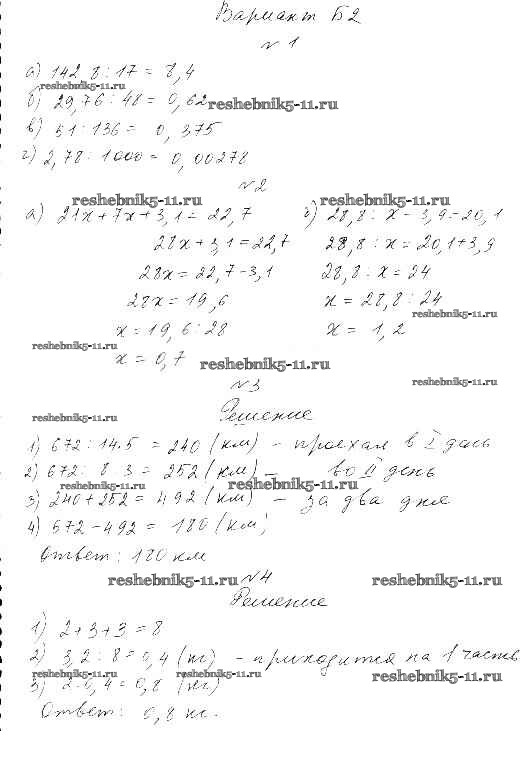 Вариант Б2
№1
а) 142,8 : 17 = 8,4
reshebnik5-11.ru
б) 29,76 : 48 = 0,62 reshebnik5-11.ru
в) 51 : 136 = 0,375
г) 2,78 : 1000 = 0,00278
№2
reshebnik5-11.ru reshebnik5-11.ru
а) 21x + 7x + 3,1 = 22,7
28x + 3,1 = 22,7
28x = 22,7 - 3,1
28x = 19,6
x = 19,6 : 28
reshebnik5-11.ru
x = 0,7 reshebnik5-11.ru
28,8 : x - 3,9 = 20,1
28,8 : x = 20,1 + 3,9
28,8 : x = 24
x = 28,8 : 24
reshebnik5-11.ru
x = 1,2
№3
reshebnik5-11.ru
reshebnik5-11.ru Решение
1) 672 : 14 · 5 = 240 (км) - проехал в I день
2) 672 : 8 · 3 = 252 (км) - во II день
reshebnik5-11.ru reshebnik5-11.ru
3) 240 + 252 = 492 (км) - за два дня
4) 672 - 492 = 180 (км)
Ответ: 180 км
reshebnik5-11.ru №4 reshebnik5-11.ru
Решение
1) 2 + 3 + 3 = 8
2) 3,2 : 8 = 0,4 (кг) - приходится на 1 часть
reshebnik5-11.ru reshebnik5-11.ru reshebnik5-11.ru
3) 2 · 0,4 = 0,8 (кг)
Ответ: 0,8 кг.